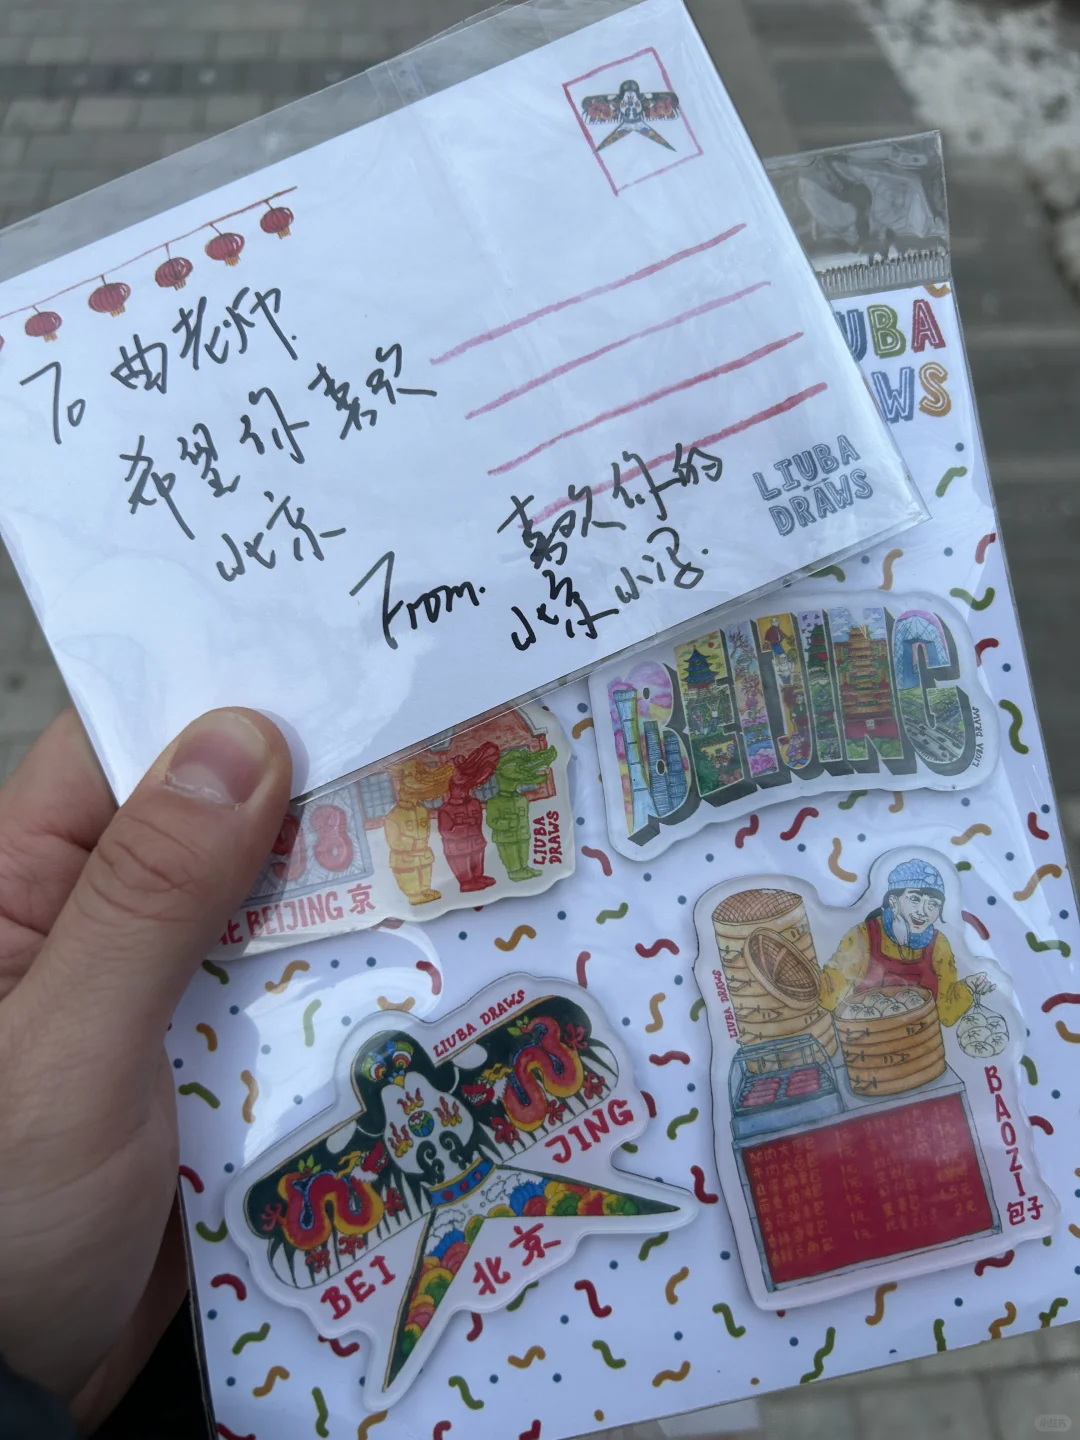 To 曲老师.
希望你喜欢
北京
From. 喜欢你的
北京小冯.
LIUBA
DRAWS
UBA
AWS
BEIJING
LIUBA DRAWS
北 BEIJING 京
LIUBA
DRAWS
LIUBA DRAWS
BEI
JING
北京
LIUBA DRAWS
BAOZI
包子